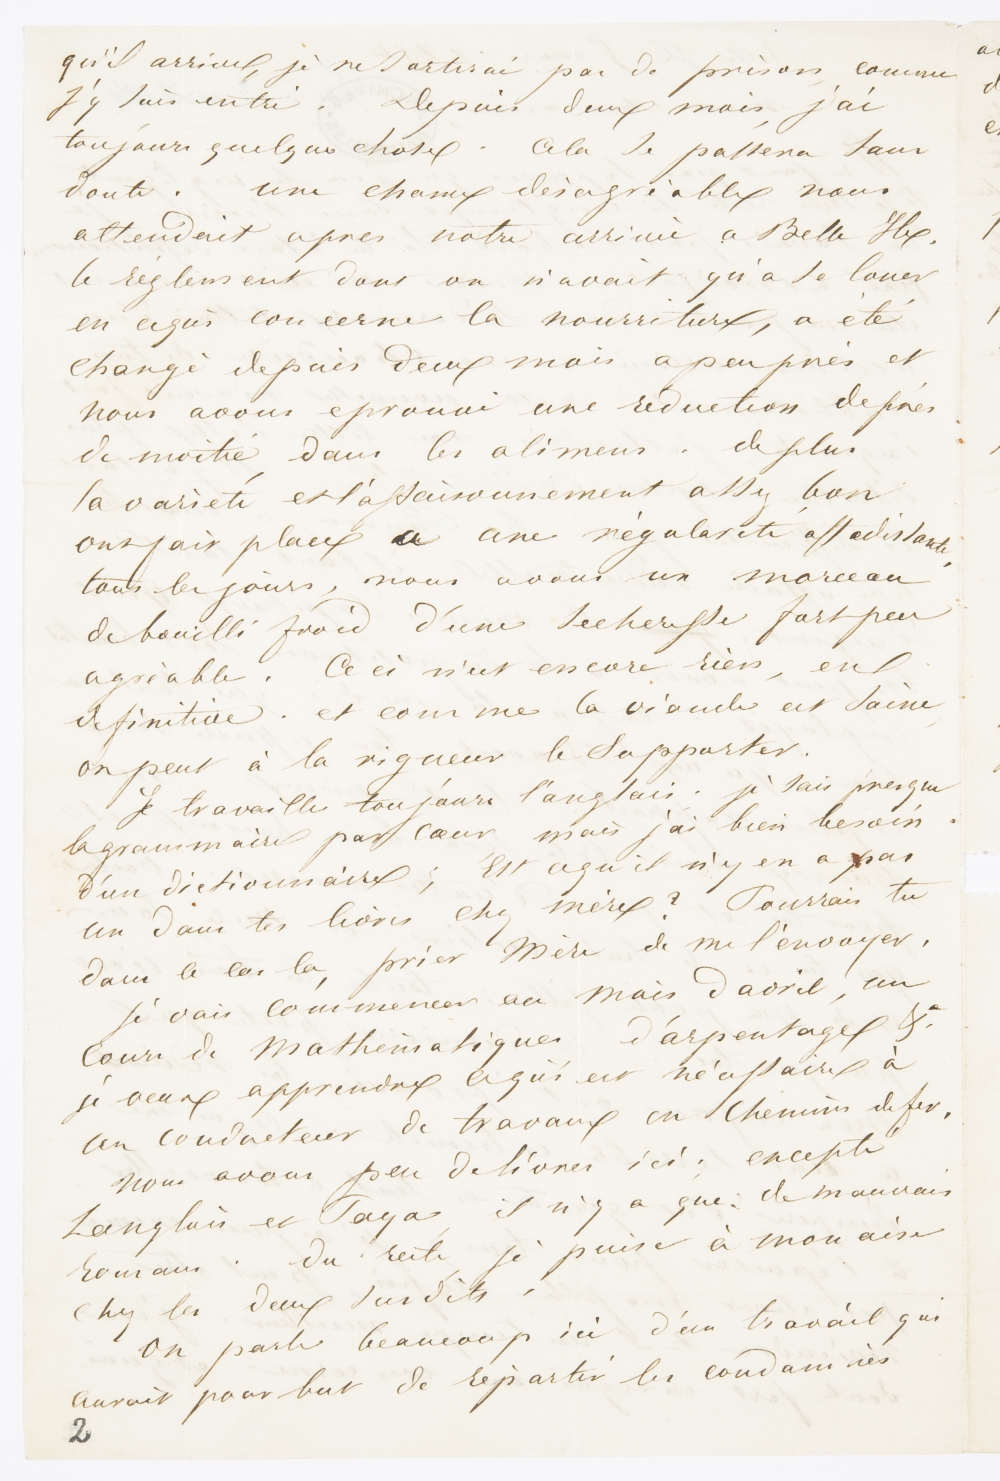 qu'il arrive, je ne sortirai pas de prison comme
j'y suis entré. Depuis deux mois, j'ai
toujours quelque chose. Cela se passera sans
doute. une chance désagréable nous
attendait apres notre arrivée a Belle Ile.
le réglement dont on n'avait qu'a se louer
en cequi concerne la nourriture, a été
changé depuis deux mois apeuprès et
nous avons eprouvé une réduction deprès
de moitié dans les alimens. deplus
la varieté et l'assaisonnement assez bon
ont fait place a une régularité assadissante,
tous les jours, nous avons un morceau
de bouilli froid d'une secheresse fort peu
agréable. Ceci n'est encore rien, en
definitive. et comme la viande est saine
on peut à la rigueur le supporter.
Je travaille toujours l'anglais. je sais presque
la grammaire par cœur mais j'ai bien besoin
d'un dictionnaire; Est cequ'il n'y en a pas
un dans tes livres chez mère? Pourrais tu
dans ce cas la, prier Mère de me l'envoyer.
je vais commencer au mois d'avril, un
cours de Mathématiques d'arpentage &a.
je veux apprendre cequi est nécessaire à
un conducteur de travaux en chemins de fer.
nous avons peu de livres ici; excepté
Langlois et Taya, il n'y a que de mauvais
romans. Du reste, je puise à mon aise
chez les deux susdits.
On parle beaucoup ici d'un travail qui
aurait pour but de répartir les condamnés
2